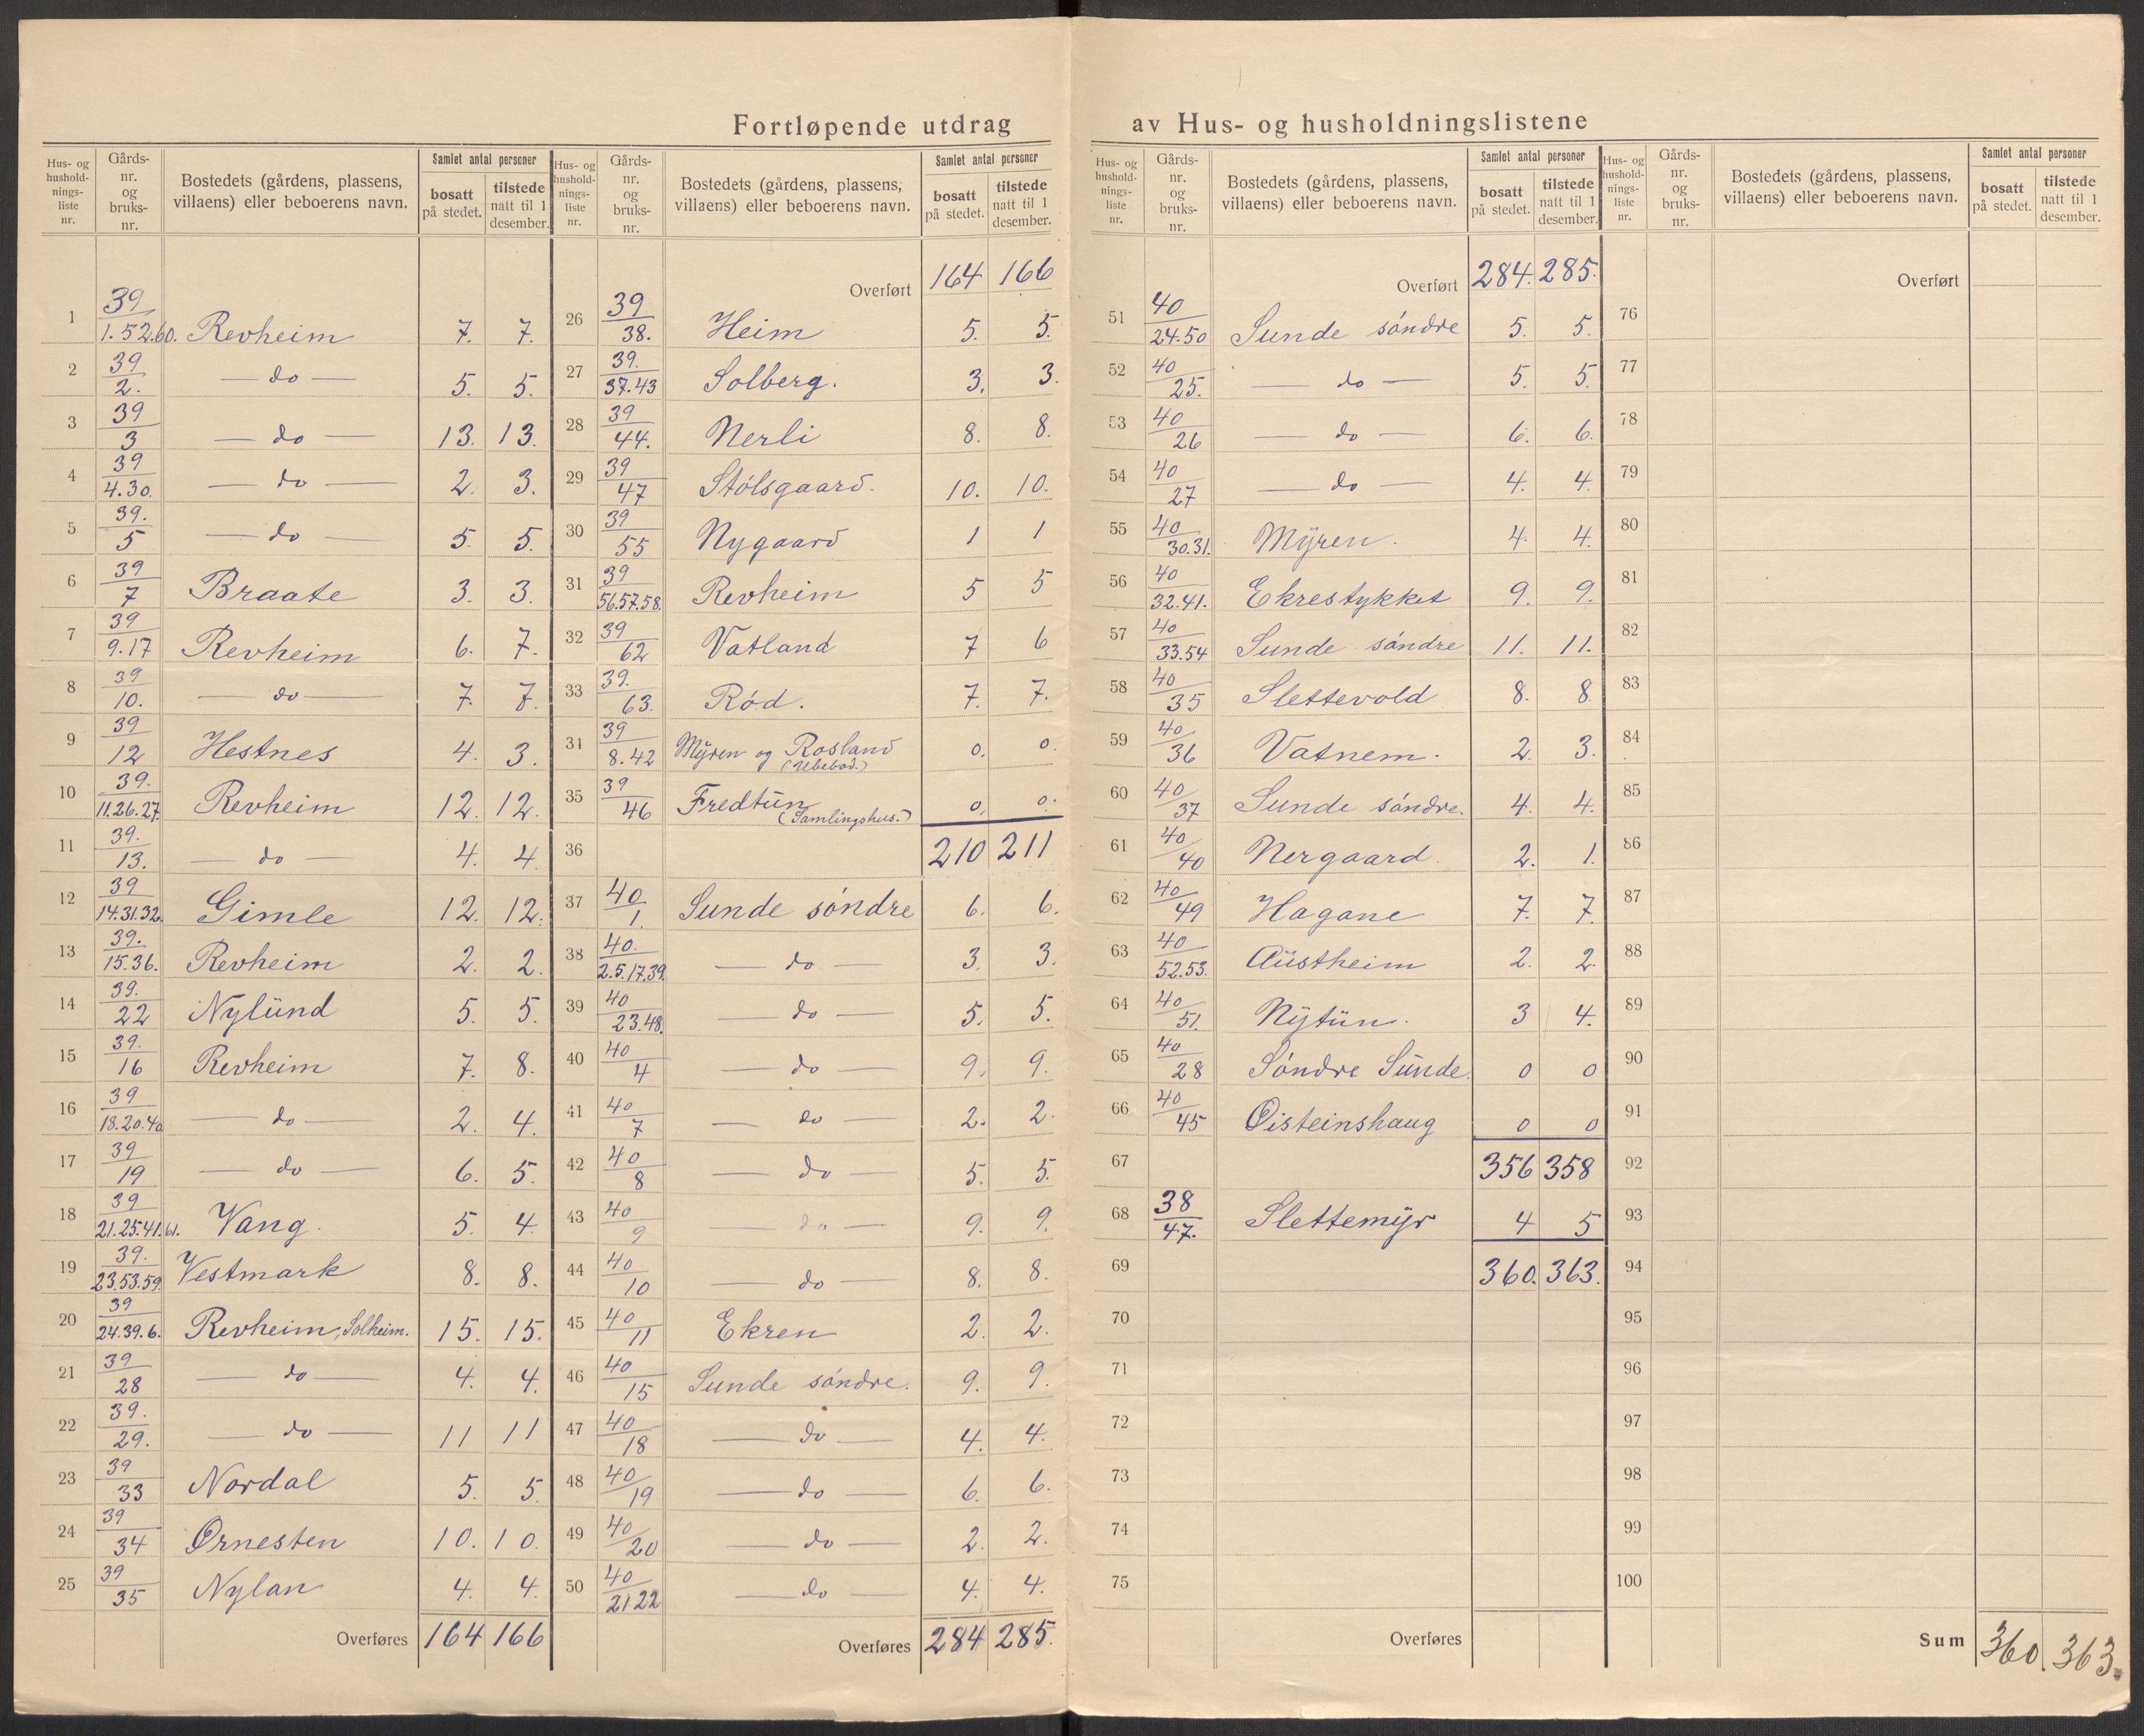 Fortløpende utdrag av Hus- og husholdningslistene
Hus- og hushold-nings-liste nr. | Gårds-nr. og bruks-nr. | Bostedets (gårdens, plassens, villaens) eller beboerens navn. | Samlet antal personer | bosatt på stedet. | tilstede natt til 1 desember.
1 39/1.52.60. Revheim 7. 7.
2 39/2. — do — 5. 5.
3 39/3 — do — 13. 13.
4 39/4.30. — do — 2. 3.
5 39./5 — do — 5. 5.
6 39/7 Braate 3. 3.
7 39/9.17 Revheim 6. 7.
8 39/10. — do — 7. 7.
9 39/12 Hestnes 4. 3.
10 39./11.26.27. Revheim 12. 12.
11 39./13. — do — 4. 4.
12 39/14.31.32. Gimle 12. 12.
13 39./15.36. Revheim 2. 2.
14 39./22 Nylünd 5. 5.
15 39./16 Revheim 7. 8.
16 39/18.20.40 — do — 2. 4.
17 39/19 — do — 6. 5.
18 39/21.25.41.61. Vang. 5. 4
19 39./23.53.59. Vestmark 8. 8.
20 39/24.39.6. Revheim, Solheim. 15. 15.
21 39/28 — do — 4. 4.
22 39./29. — do — 11 11
23 39/33 Nordal 5. 5.
24 39/34 Ørnesten 10. 10.
25 39/35 Nylan 4. 4.
Overføres 164 166
Hus- og hushold-nings-liste nr. | Gårds-nr. og bruks-nr. | Bostedets (gårdens, plassens, villaens) eller beboerens navn. | Samlet antal personer | bosatt på stedet. | tilstede natt til 1 desember.
Overført 164 166
26 39/38. Heim 5. 5.
27 39./37.43 Solberg. 3. 3.
28 39/44. Nerli 8. 8.
29 39/47 Stólsgaard. 10. 10.
30 39/55 Nygaard 1 1
31 39/56.57.58. Revheim 5 5
32 39/62 Vatland 7 6
33 39./63. Ród. 7. 7.
34 39/8.42 Myren og Rosland (Ubebod.) 0. 0.
35 39/46 Fredtün (Samlingshus.) 0. 0.
36 210 211
37 40/1. Sunde söndre 6. 6.
38 40./2.5.17.39. — do — 3. 3.
39 40/23.48. — do — 5. 5.
40 40/4 — do — 9. 9.
41 40/7 — do — 2. 2.
42 40/8 — do — 5. 5.
43 40/9 — do — 9. 9.
44 40/10 — do — 8. 8.
45 40/11 Ekren 2. 2.
46 40/15 Sunde söndre. 9. 9.
47 40/18 — do — 4. 4.
48 40/19 — do — 6. 6.
49 40/20 — do — 2. 2.
50 40/21 22 — do — 4. 4.
Overføres 284 285.
Hus- og hushold-nings-liste nr. | Gårds-nr. og bruks-nr. | Bostedets (gårdens, plassens, villaens) eller beboerens navn. | Samlet antal personer | bosatt på stedet. | tilstede natt til 1 desember.
Overført 284. 285.
51 40/24.50 Sunde söndre 5. 5.
52 40/25. — do — 5. 5.
53 40/26 — do — 6. 6.
54 40/27 — do — 4. 4.
55 40/30.31. Mÿren. 4. 4.
56 40/32.41. Ekrestykket 9. 9.
57 40/33.54 Sunde söndre 11. 11.
58 40/35 Slettevold 8. 8
59 40/36 Vatnem. 2. 3.
60 40/37 Sunde söndre. 4. 4.
61 40/40 Nergaard 2. 1.
62 40/49 Hagane 7. 7.
63 40/52.53. Aüstheim 2. 2.
64 40/51. Nÿtün. 3 4.
65 40/28 Söndre Sünde. 0 0
66 40/45 Øisteinshaug 0 0
67 356 358
68 38/47. Slettemÿr 4 5
69 360. 363.
70
71
72
73
74
75
Overføres
Hus- og hushold-nings-liste nr. | Gårds-nr. og bruks-nr. | Bostedets (gårdens, plassens, villaens) eller beboerens navn. | Samlet antal personer | bosatt på stedet. | tilstede natt til 1 desember.
Overført
76
77
78
79
80
81
82
83
84
85
86
87
88
89
90
91
92
93
94
95
96
97
98
99
100
Sum 360. 363.